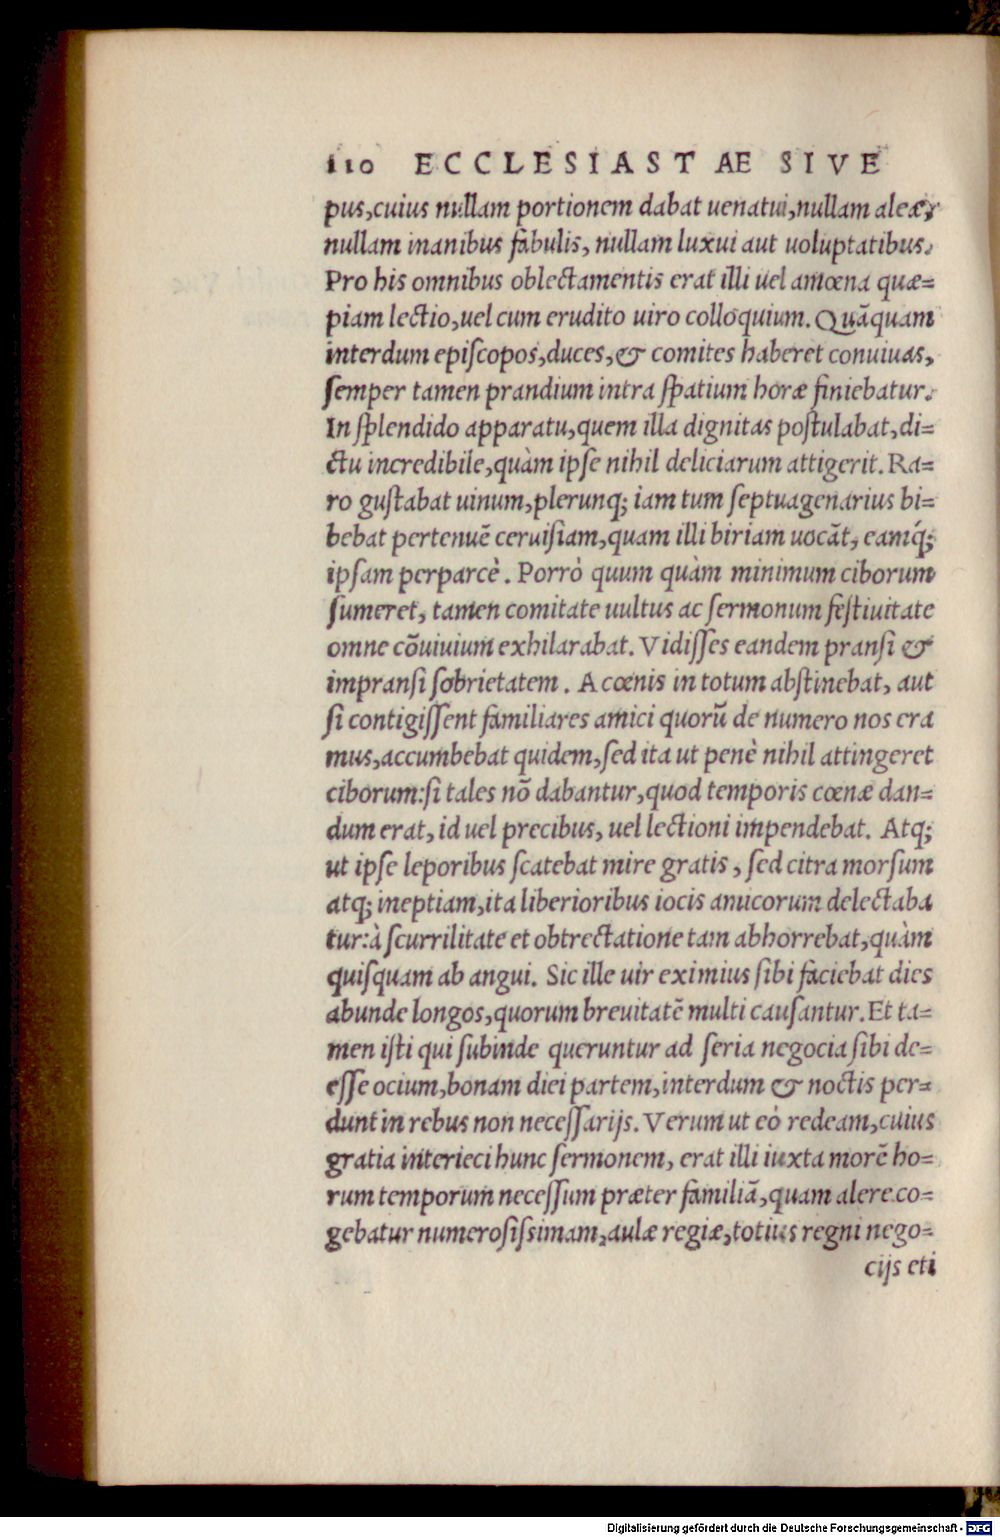 110 ECCLESIASTAE SIVE
pus,cuius nullam portionem dabat uenatui,nullam aleæ,
nullam inanibus fabulis, nullam luxui aut uoluptatibus.
Pro his omnibus oblectamentis erat illi uel amœna quæ=
piam lectio,uel cum erudito uiro colloquium. Quāquam
interdum episcopos,duces,& comites haberet conuiuas,
semper tamen prandium intra spatium horæ finiebatur.
In splendido apparatu,quem illa dignitas postulabat,di=
ctu incredibile,quàm ipse nihil deliciarum attigerit. Ra=
ro gustabat uinum,plerunq; iam tum septuagenarius bi=
bebat pertenuē ceruisiam,quam illi biriam uocāt, eamq́;
ipsam perparcè. Porrò quum quàm minimum ciborum
sumeret, tamen comitate uultus ac sermonum festiuitate
omne cōuiuium exhilarabat. Vidisses eandem pransi &
impransi sobrietatem. A cœnis in totum abstinebat, aut
si contigissent familiares amici quorū de numero nos era
mus,accumbebat quidem,sed ita ut penè nihil attingeret
ciborum:si tales nō dabantur,quod temporis cœnæ dan=
dum erat, id uel precibus, uel lectioni impendebat. Atq;
ut ipse leporibus scatebat mire gratis, sed citra morsum
atq; ineptiam,ita liberioribus iocis amicorum delectaba
tur:à scurrilitate et obtrectatione tam abhorrebat,quàm
quisquam ab angui. Sic ille uir eximius sibi faciebat dies
abunde longos,quorum breuitatē multi causantur. Et ta=
men isti qui subinde queruntur ad seria negocia sibi de=
esse ocium,bonam diei partem,interdum & noctis per=
dunt in rebus non necessarijs. Verum ut eò redeam,cuius
gratia interieci hunc sermonem, erat illi iuxta morē ho=
rum temporum necessum præter familiā,quam alere co=
gebatur numerosissimam,aulæ regiæ,totius regni nego=
cijs eti
Digitalisierung gefördert durch die Deutsche Forschungsgemeinschaft - DFG